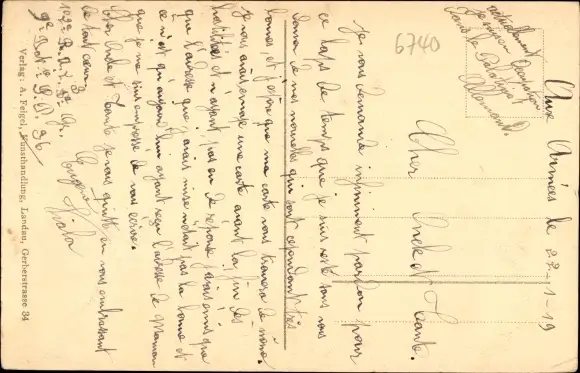 Aux Armées le 22-1-19
actuellement
je suis en occupation
dans le Palatinat
Allemand.
6740
Cher Oncle et Tante.
Je vous demande infiniment pardon pour
ce laps de temps que je suis resté sans vous
donner de mes nouvelles qui sont cependant très
bonnes, et j'espère que ma carte vous trouvera de même.
Je vous avais envoyé une carte avant la fin des
hostilités et n'ayant pas eu de réponse j'avais cru que
que l'adresse que j'avais mise n'était pas la bonne et
ce n'est qu'aujourd'hui ayant reçu l'adresse de Maman
que je me suis empressé de vous écrire.
Cher Oncle et Tante je vous quitte en vous embrassant
de tout cœur.
Eugène
S. P. 96
Verlag: A. Feigel, Kunsthandlung, Landau, Gerberstrasse 34